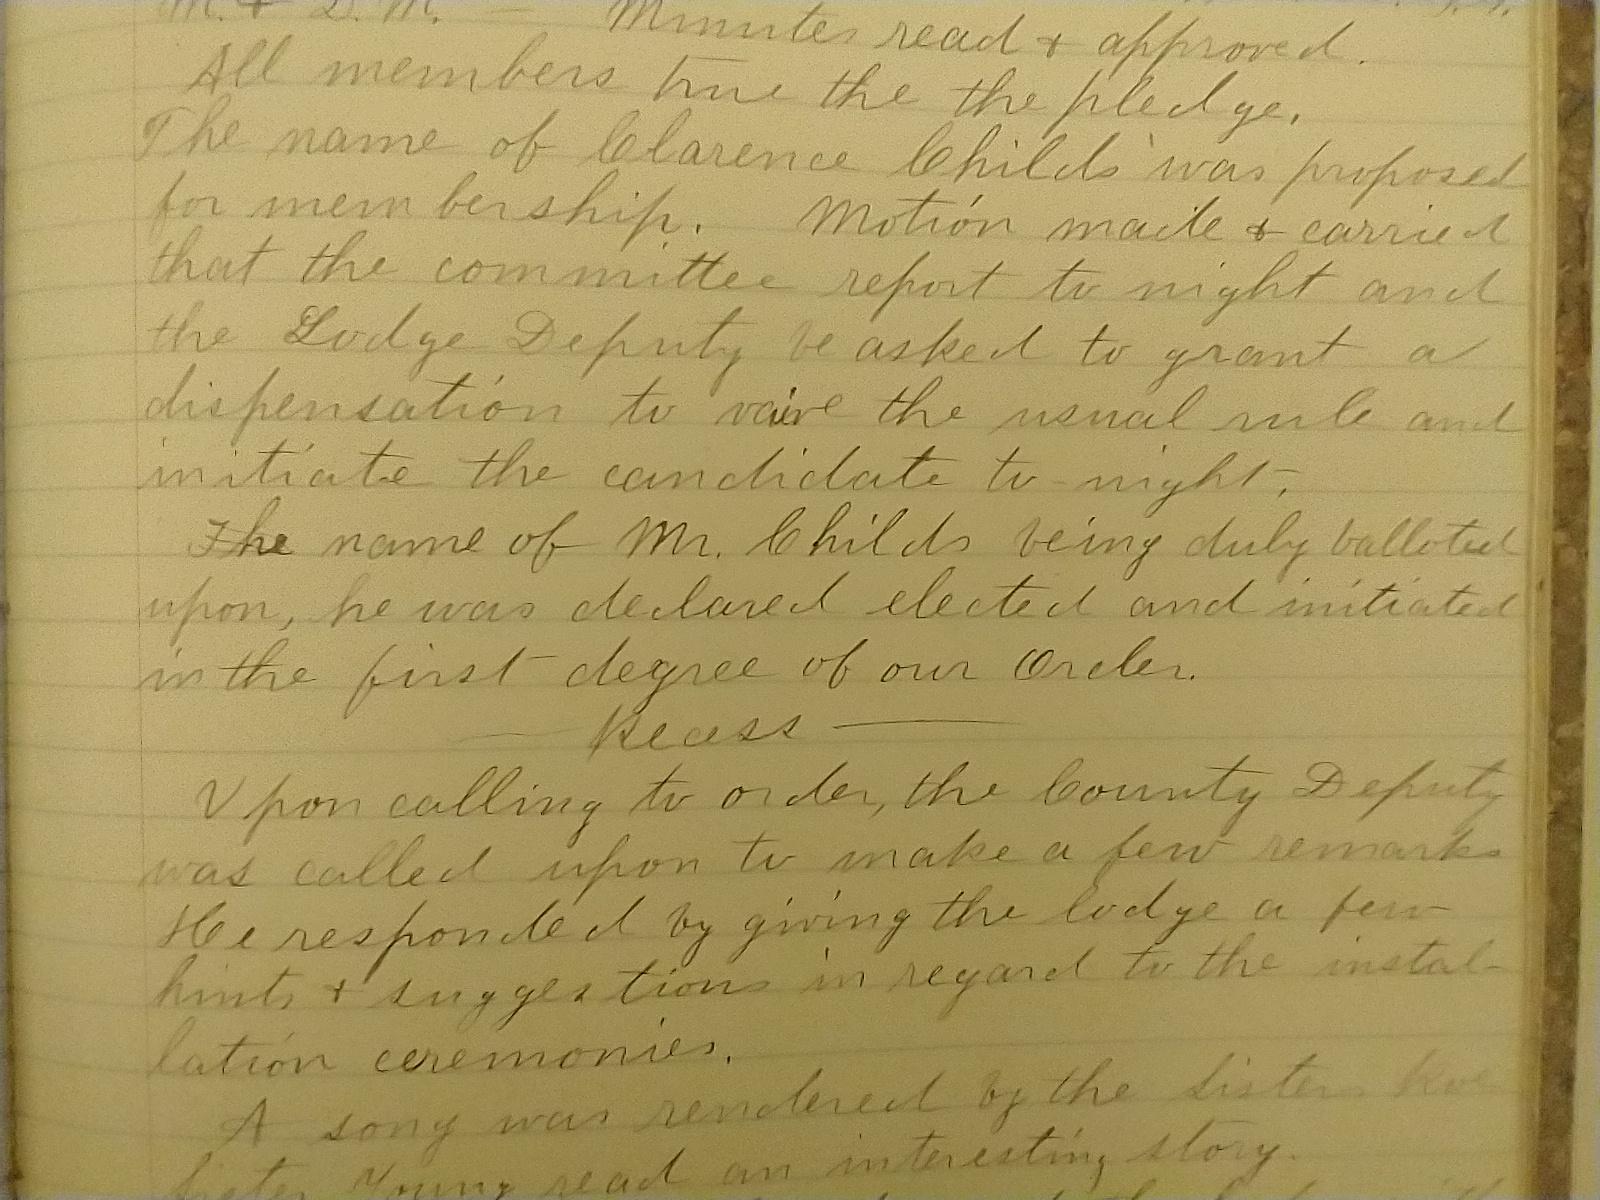 M. & D. M. — Minutes read & approved.
All members true the the pledge.
The name of Clarence Childs was proposed
for membership. Motion made & carried
that the committee report to night and
the Lodge Deputy be asked to grant a
dispensation to vaive the usual rule and
initiate the candidate to-night.
The name of Mr. Childs being duly balloted
upon, he was declared elected and initiated
in the first degree of our Order.
— Recess —
Upon calling to order, the County Deputy
was called upon to make a few remarks
He responded by giving the lodge a few
hints & suggestions in regard to the instal-
lation ceremonies.
A song was rendered by the Sisters
Sister Young read an interesting story.